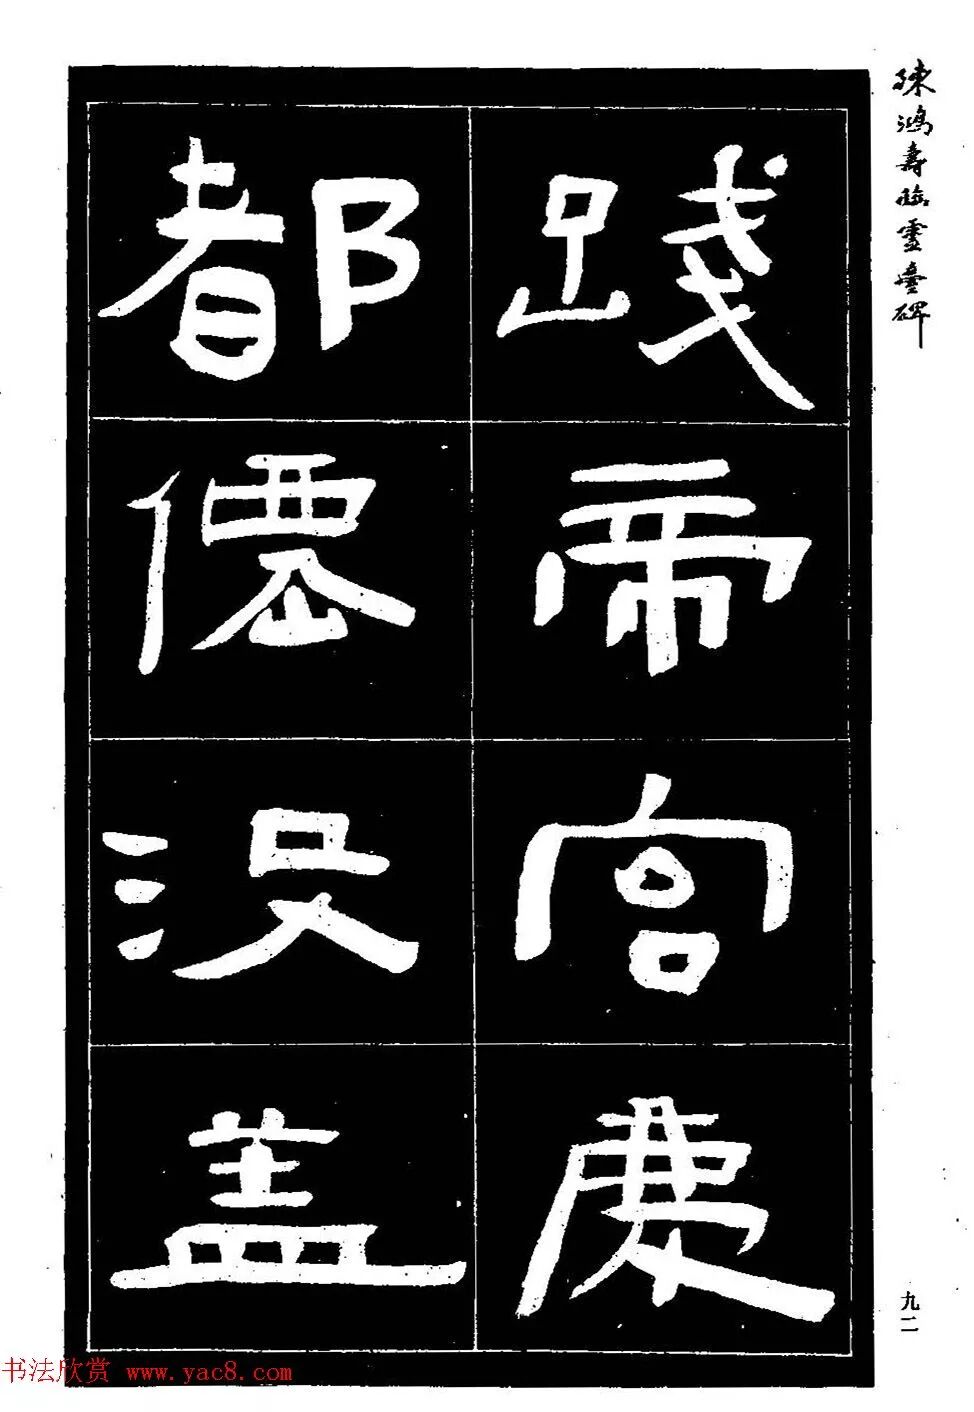 陳鴻壽臨靈臺碑
踐帝宮慶
都僊沒盖
九二
书法欣赏 www.yac8.com